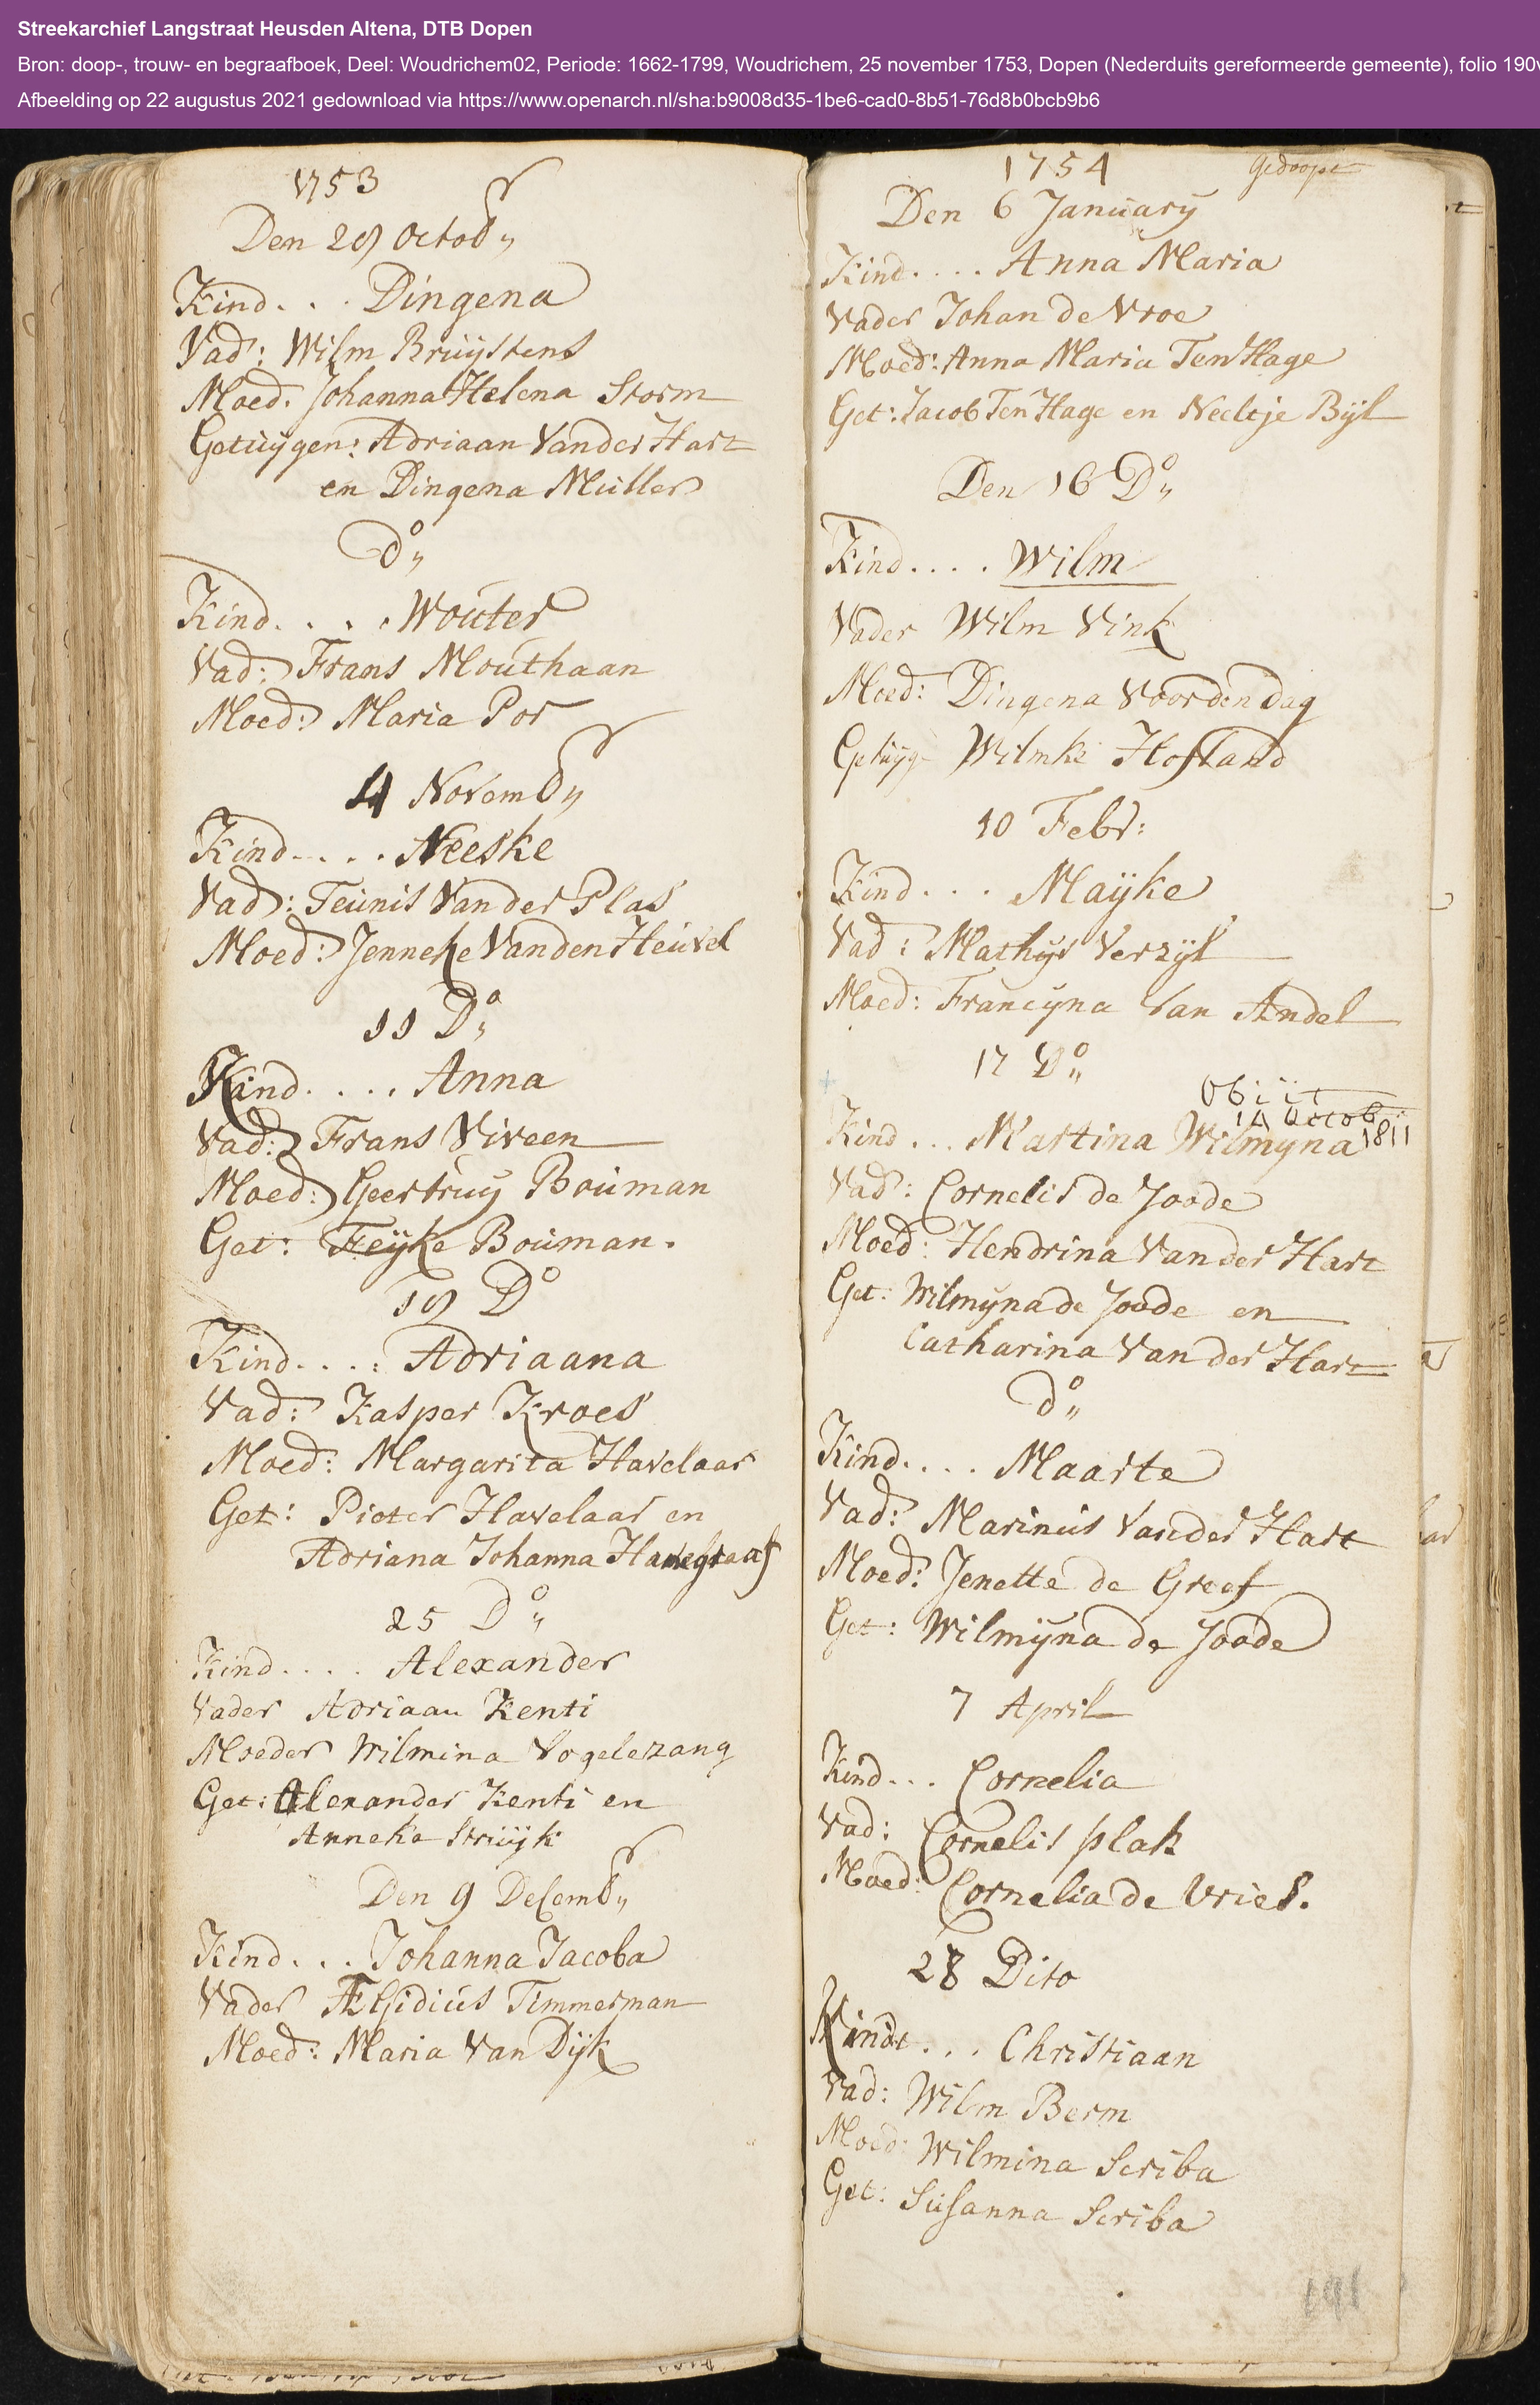 Streekarchief Langstraat Heusden Altena, DTB Dopen
Bron: doop-, trouw- en begraafboek, Deel: Woudrichem02, Periode: 1662-1799, Woudrichem, 25 november 1753, Dopen (Nederduits gereformeerde gemeente), folio 190v
Afbeelding op 22 augustus 2021 gedownload via https://www.openarch.nl/sha:b9008d35-1be6-cad0-8b51-76d8b0bcb9b6
1753
Den 29 Octobr
Kind. . . Dingena
Vad: Wilm Bruijstens
Moed: Johanna Helena Storm
Getuijgen: Adriaan Vander Hart
en Dingena Muller
do
Kind. . . . Wouter
Vad: Frans Mouthaan
Moed: Maria Por
4 Novembr
Kind . . . Neeske
Vad: Teunis Vander Plas
Moed: Jenneke Vanden Heuvel
11 Do
Kind. . . . Anna
Vad: Frans Viveen
Moed: Geertruij Bouman
Get: Feijke Bouman.
19 Do
Kind. . . . Adriaana
Vad: Kasper Kroes
Moed: Margarita Havelaar
Get: Pieter Havelaar en
Adriana Johanna Hanegraaf
25 Do
Kind . . . . Alexander
Vader Adriaan Kenti
Moeder Wilmina Vogelezang
Get: Alexander Kenti en
Anneke Struijk
Den 9 Decembr
Kind . . . Johanna Jacoba
Vader Ægidius Timmerman
Moed: Maria Van Dijk
1754
Gedoopt
Den 6 January
Kind. . . . Anna Maria
Vader Johan de Vroe
Moed: Anna Maria Ten Hage
Get: Jacob Ten Hage en Neeltje Bijl
Den 16 Do
Kind . . . . Wilm
Vader Wilm Vink
Moed: Dingena Voordendag
Getuijg Wilmke Hofland
10 Febr:
Kind . . . Maijke
Vad: Mathijs Verzijl
Moed: Francijna Van Andel
17 Do
Obiit
14 Octob:
1811
Kind . . . Martina Wilmijna
Vad: Cornelis de Joode
Moed: Hendrina Vander Hart
Get: Wilmijna de Joode en
Catharina Vander Hart
do
Kind. . . . Maarte
Vad: Marinus Vander Hart
Moed: Jenette de Greef
Get: Wilmijna de Joode
7 April
Kind . . . Cornelia
Vad: Cornelis plak
Moed: Cornelia de Vries.
28 Dito
Kindt . . . Christiaan
Vad: Wilm Berm
Moed: Wilmina Scriba
Get: Susanna Scriba
191